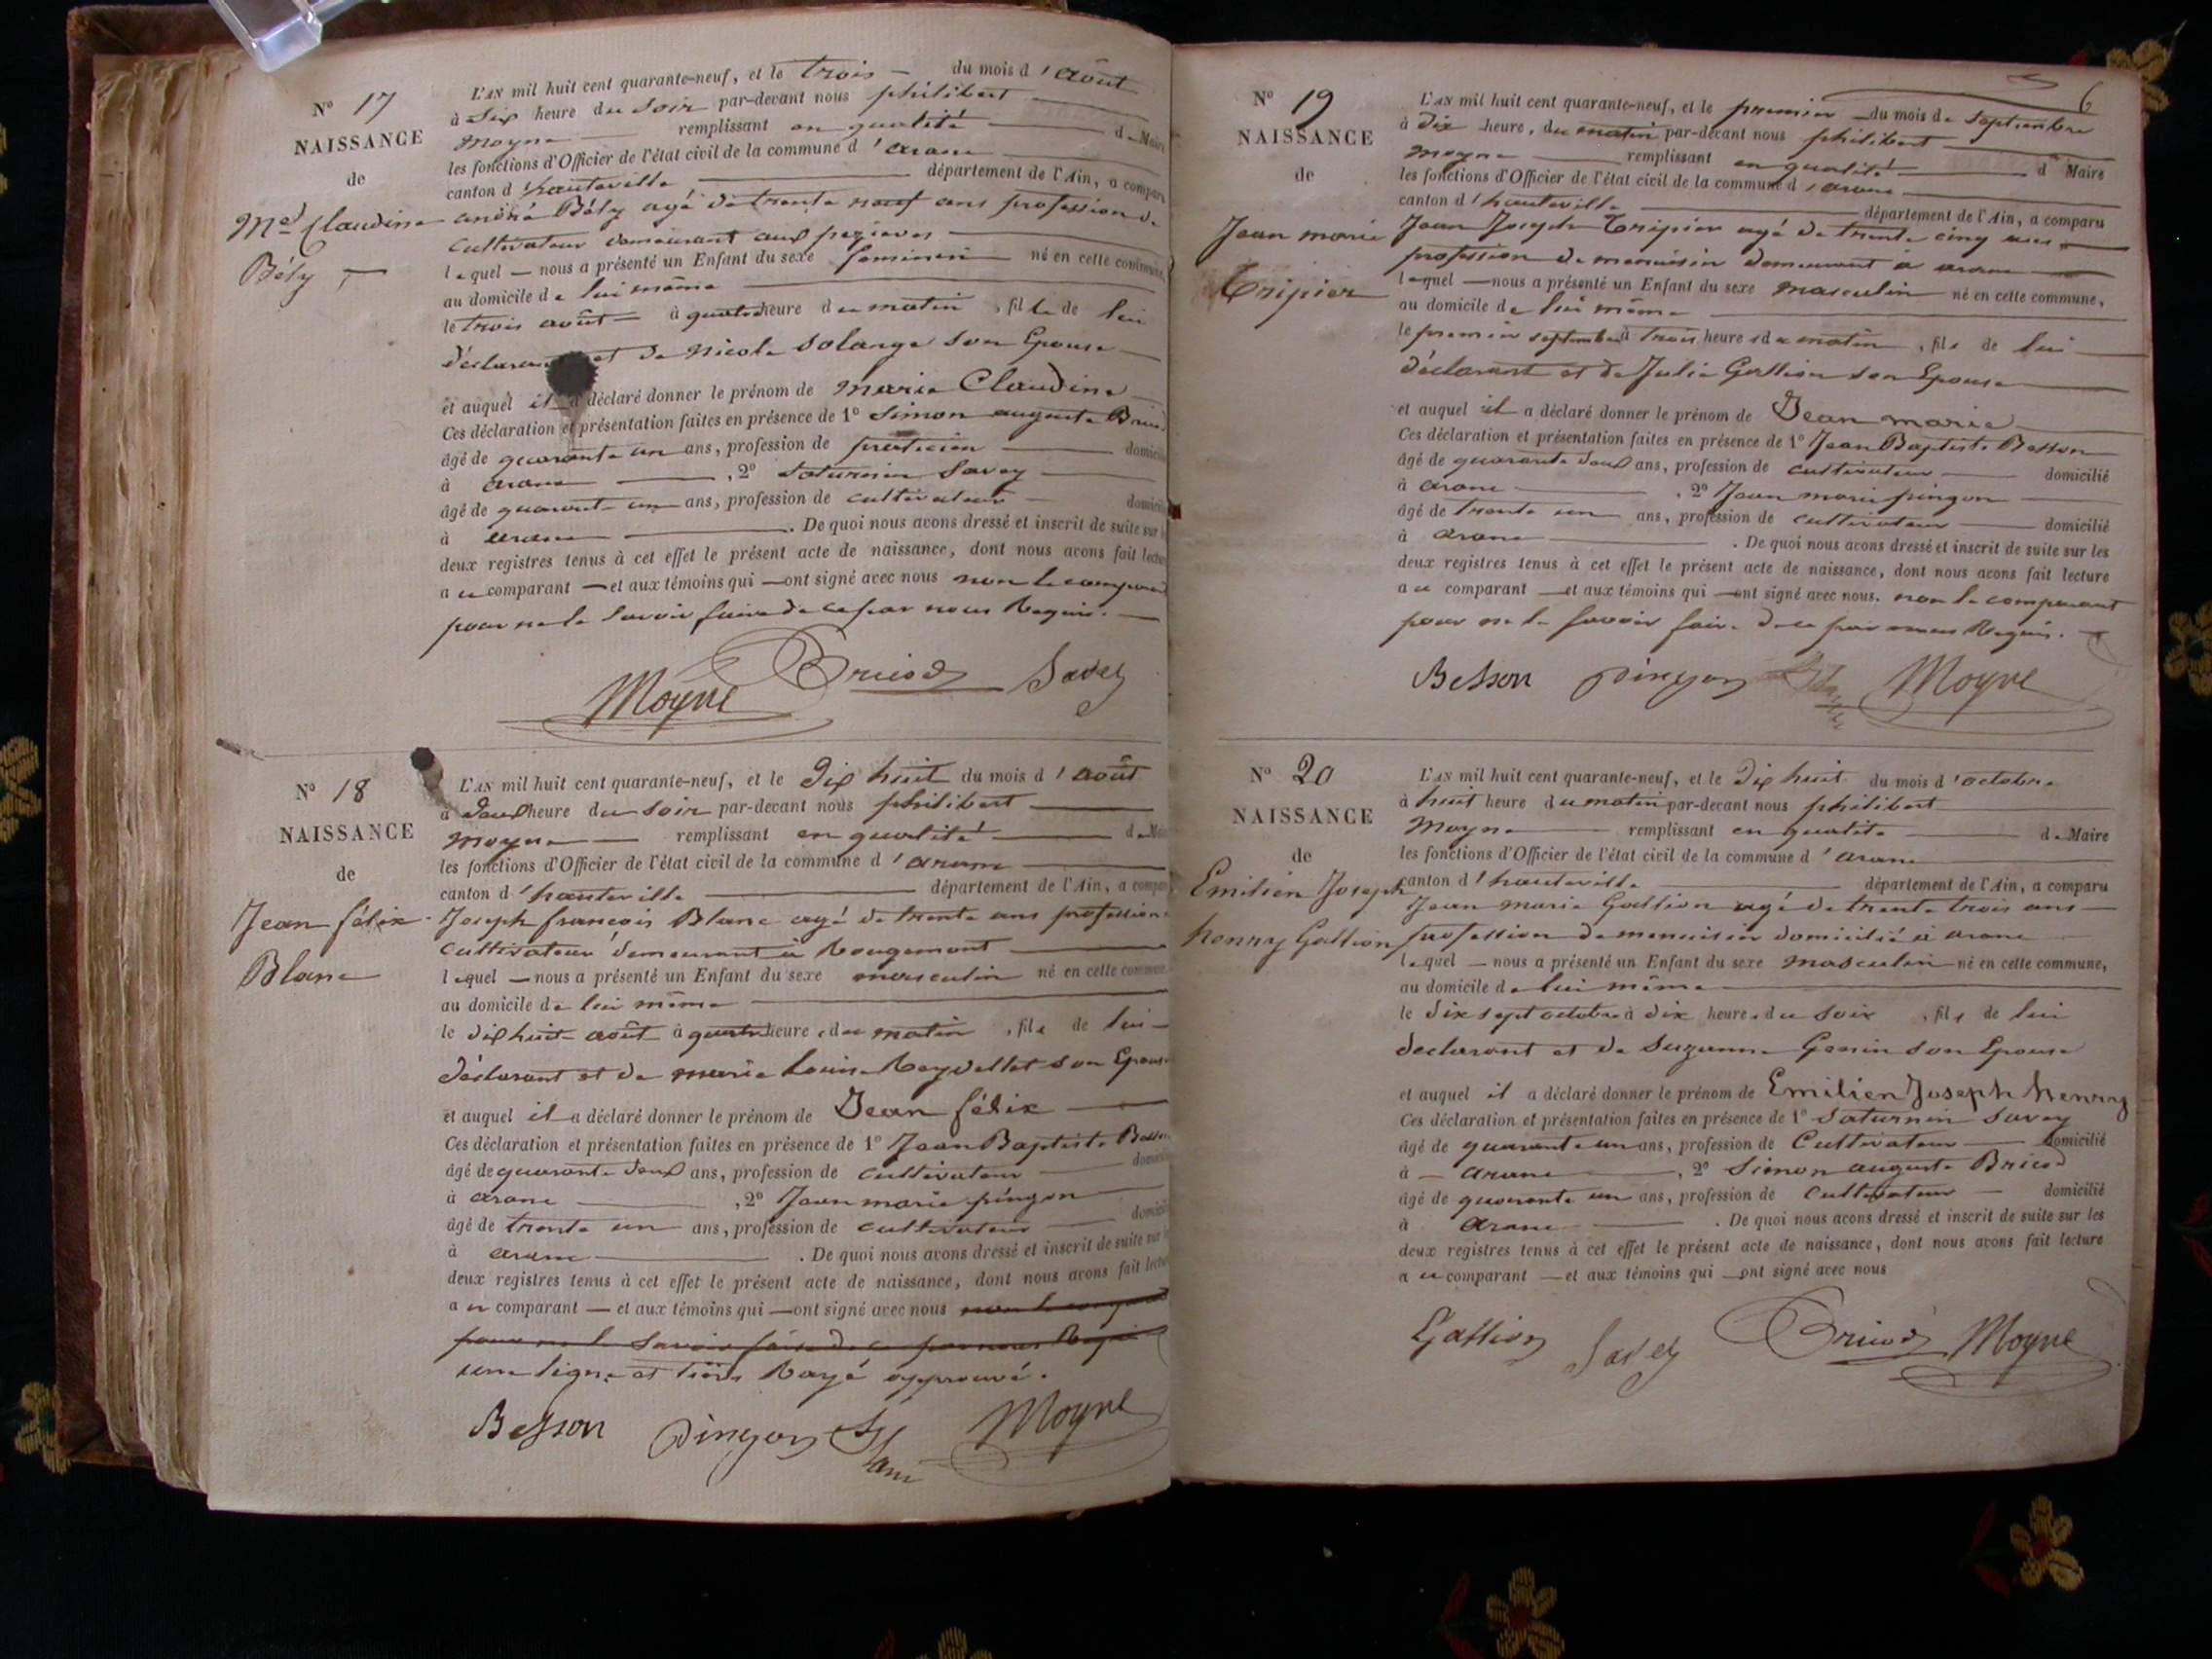 N° 17
NAISSANCE
de
M.ie Claudine
Bély
L'AN mil huit cent quarante-neuf, et le trois du mois d'août
à Six heure du Soir par-devant nous philibert
moyne remplissant en qualité de Maire
les fonctions d'Officier de l'état civil de la commune d'arane
canton d'hauteville département de l'Ain, a comparu
andré Bély agé de trente neuf ans profession de
cultivateur demeurant aux pezieres
lequel nous a présenté un Enfant du sexe feminin né en cette commune,
au domicile de lui même
le trois août à quatre heure du matin, fille de lui
déclarant et de Nicole Solange son Epouse
et auquel il a déclaré donner le prénom de marie Claudine
Ces déclaration et présentation faites en présence de 1° Simon auguste Briod
âgé de quarante un ans, profession de praticien domicilié
à arane, 2° Saturnin Savey
âgé de quarante un ans, profession de cultivateur domicilié
à arane. De quoi nous avons dressé et inscrit de suite sur les
deux registres tenus à cet effet le présent acte de naissance, dont nous avons fait lecture
au comparant et aux témoins qui ont signé avec nous non le comparant
pour ne le Savoir faire de ce par nous Requis.
Moyne Briod Savey
N° 18
NAISSANCE
de
Jean félix
Blanc
L'AN mil huit cent quarante-neuf, et le Dix huit du mois d'août
à deux heure du Soir par-devant nous philibert
moyne remplissant en qualité de Maire
les fonctions d'Officier de l'état civil de la commune d'arane
canton d'hauteville département de l'Ain, a comparu
Joseph françois Blanc agé de trente ans profession
cultivateur demeurant à Rougemont
lequel nous a présenté un Enfant du sexe masculin né en cette commune
au domicile de lui même
le dix huit août à quatre heure du matin, fils de lui
déclarant et de marie Louise Reydellet son Epouse
et auquel il a déclaré donner le prénom de Jean félix
Ces déclaration et présentation faites en présence de 1° Jean Baptiste Besson
âgé de quarante deux ans, profession de cultivateur domicilié
à arane, 2° Jean marie pingon
âgé de trente un ans, profession de cultivateur domicilié
à arane. De quoi nous avons dressé et inscrit de suite sur les
deux registres tenus à cet effet le présent acte de naissance, dont nous avons fait lecture
au comparant et aux témoins qui ont signé avec nous non le comparant
pour ne le Savoir faire de ce par nous Requis
une ligne et tiers Rayé approuvé.
Besson pingon Blanc Moyne
6
N° 19
NAISSANCE
de
Jean marie
Tripier
L'AN mil huit cent quarante-neuf, et le premier du mois de Septembre
à dix heure, du matin par-devant nous philibert
moyne remplissant en qualité d Maire
les fonctions d'Officier de l'état civil de la commune d'arane
canton d'hauteville département de l'Ain, a comparu
Jean Joseph Tripier agé de trente cinq ans
profession de menuisier demeurant a arane
lequel nous a présenté un Enfant du sexe masculin né en cette commune,
au domicile de lui même
le premier septembre à trois heure du matin, fils de lui
déclarant et de Julie Gallion son Epouse
et auquel il a déclaré donner le prénom de Jean marie
Ces déclaration et présentation faites en présence de 1° Jean Baptiste Besson
âgé de quarante deux ans, profession de cultivateur domicilié
à arane, 2° Jean marie pingon
âgé de trente un ans, profession de cultivateur domicilié
à arane. De quoi nous avons dressé et inscrit de suite sur les
deux registres tenus à cet effet le présent acte de naissance, dont nous avons fait lecture
au comparant et aux témoins qui ont signé avec nous. non le comparant
pour ne le savoir faire de ce par nous Requis.
Besson pingon Moyne
N° 20
NAISSANCE
de
Emilien Joseph
henry Gallion
L'AN mil huit cent quarante-neuf, et le Dix huit du mois d'octobre
à huit heure du matin par-devant nous philibert
Moyne remplissant en qualité de Maire
les fonctions d'Officier de l'état civil de la commune d'arane
canton d'hauteville département de l'Ain, a comparu
Jean marie Gallion agé de trente trois ans
profession de menuisier domicilié à arane
lequel nous a présenté un Enfant du sexe masculin né en cette commune,
au domicile de lui même
le dix sept octobre à dix heure du soir, fils de lui
declarant et de Suzanne Genin son Epouse
et auquel il a déclaré donner le prénom de Emilien Joseph henry
Ces déclaration et présentation faites en présence de 1° Saturnin Savey
âgé de quarante un ans, profession de Cultivateur domicilié
à arane, 2° Simon auguste Briod
âgé de quarante un ans, profession de Cultivateur domicilié
à arane. De quoi nous avons dressé et inscrit de suite sur les
deux registres tenus à cet effet le présent acte de naissance, dont nous avons fait lecture
au comparant et aux témoins qui ont signé avec nous
Gallion Savey Briod Moyne